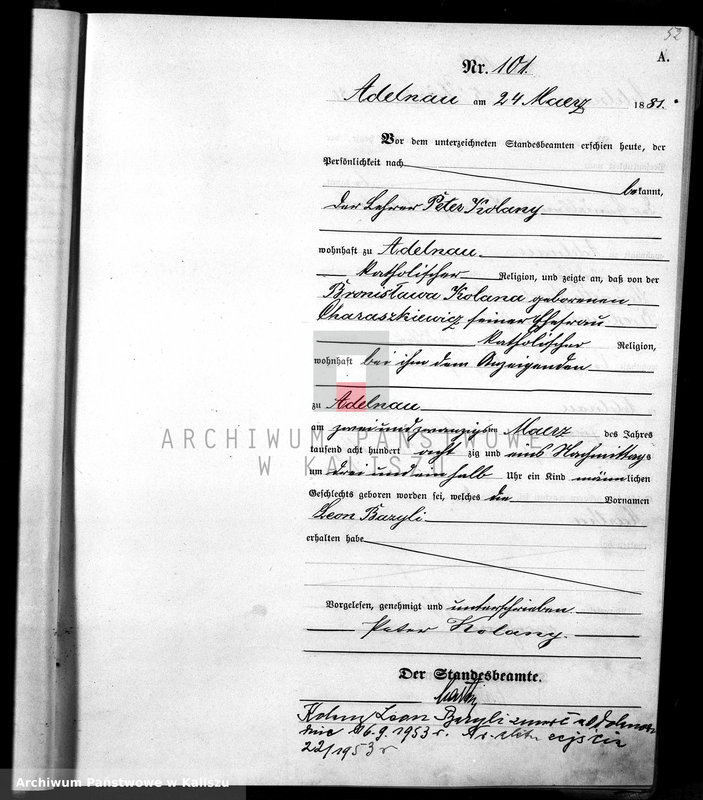 52
A.
Nr. 101.
Adelnau am 24 Maerz 1881.
Vor dem unterzeichneten Standesbeamten erschien heute, der
Persönlichkeit nach
bekannt,
der Lehrer Peter Kolany
wohnhaft zu Adelnau
katholischer Religion, und zeigte an, daß von der
Bronisława Kolana geborenen
Charaszkiewicz seiner Ehefrau
katholischer Religion,
wohnhaft bei ihm dem Anzeigenden
zu Adelnau
am zwei und zwanzigsten Maerz des Jahres
tausend acht hundert acht zig und eins Nachmittags
um drei und ein halb Uhr ein Kind männlichen
Geschlechts geboren worden sei, welches die Vornamen
Leon Bazyli
erhalten habe
Vorgelesen, genehmigt und unterschrieben
Peter Kolany.
Der Standesbeamte.
Kolany Leon Bazyli zmarł
dnia 6.9.1953 r.
22/1953 r
ARCHIWUM PAŃSTWOWE
W KALISZU
Archiwum Państwowe w Kaliszu